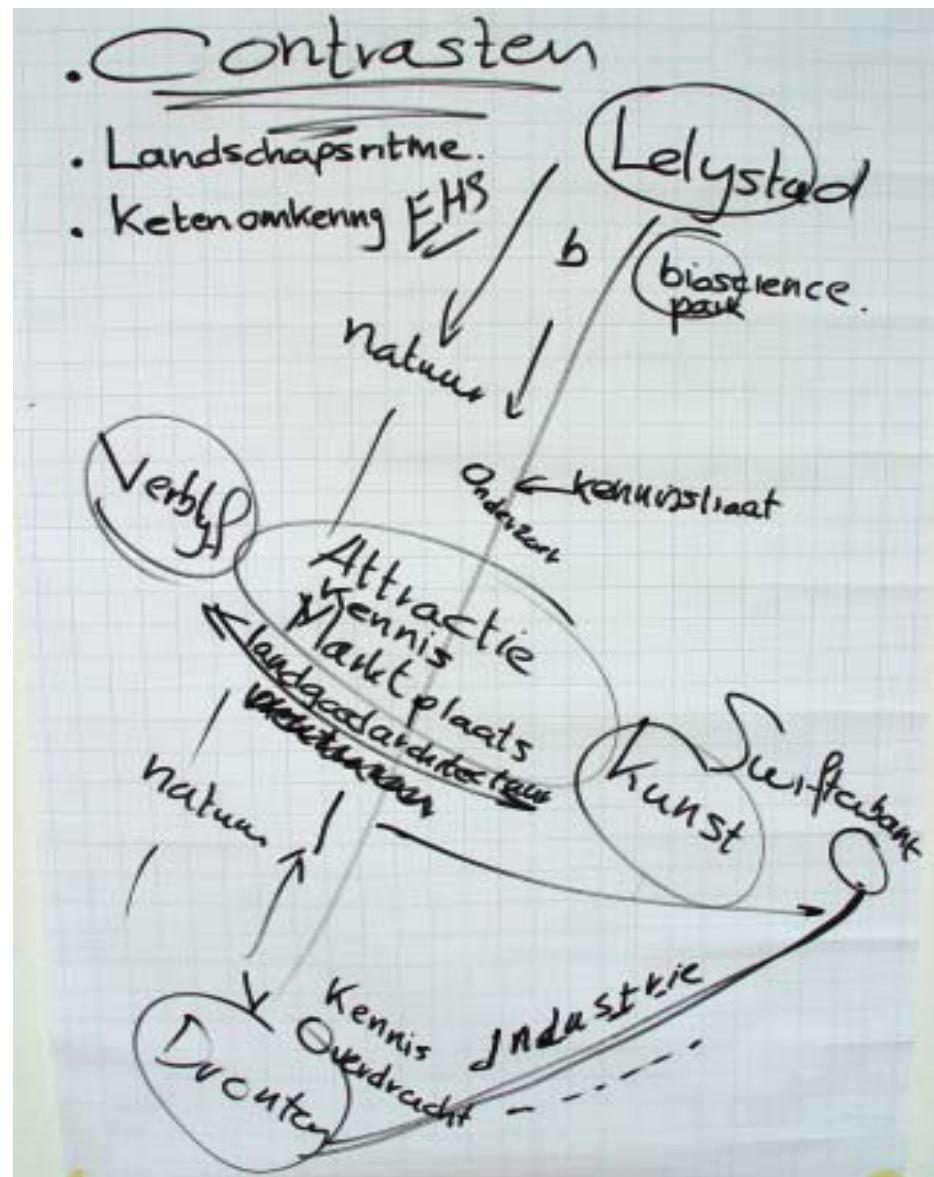 . Contrasten
. Landschapsritme.
. Ketenomkering EHS
Lelystad
b
bioscience
park
natuur
Verblijf
Onderzoek
kennisstraat
Attractie
Kennis
Marktplaats
landgoedarchitectuur
Kunst
Swifterbant
natuur
Kennis
Overdracht
Industrie
Dronten